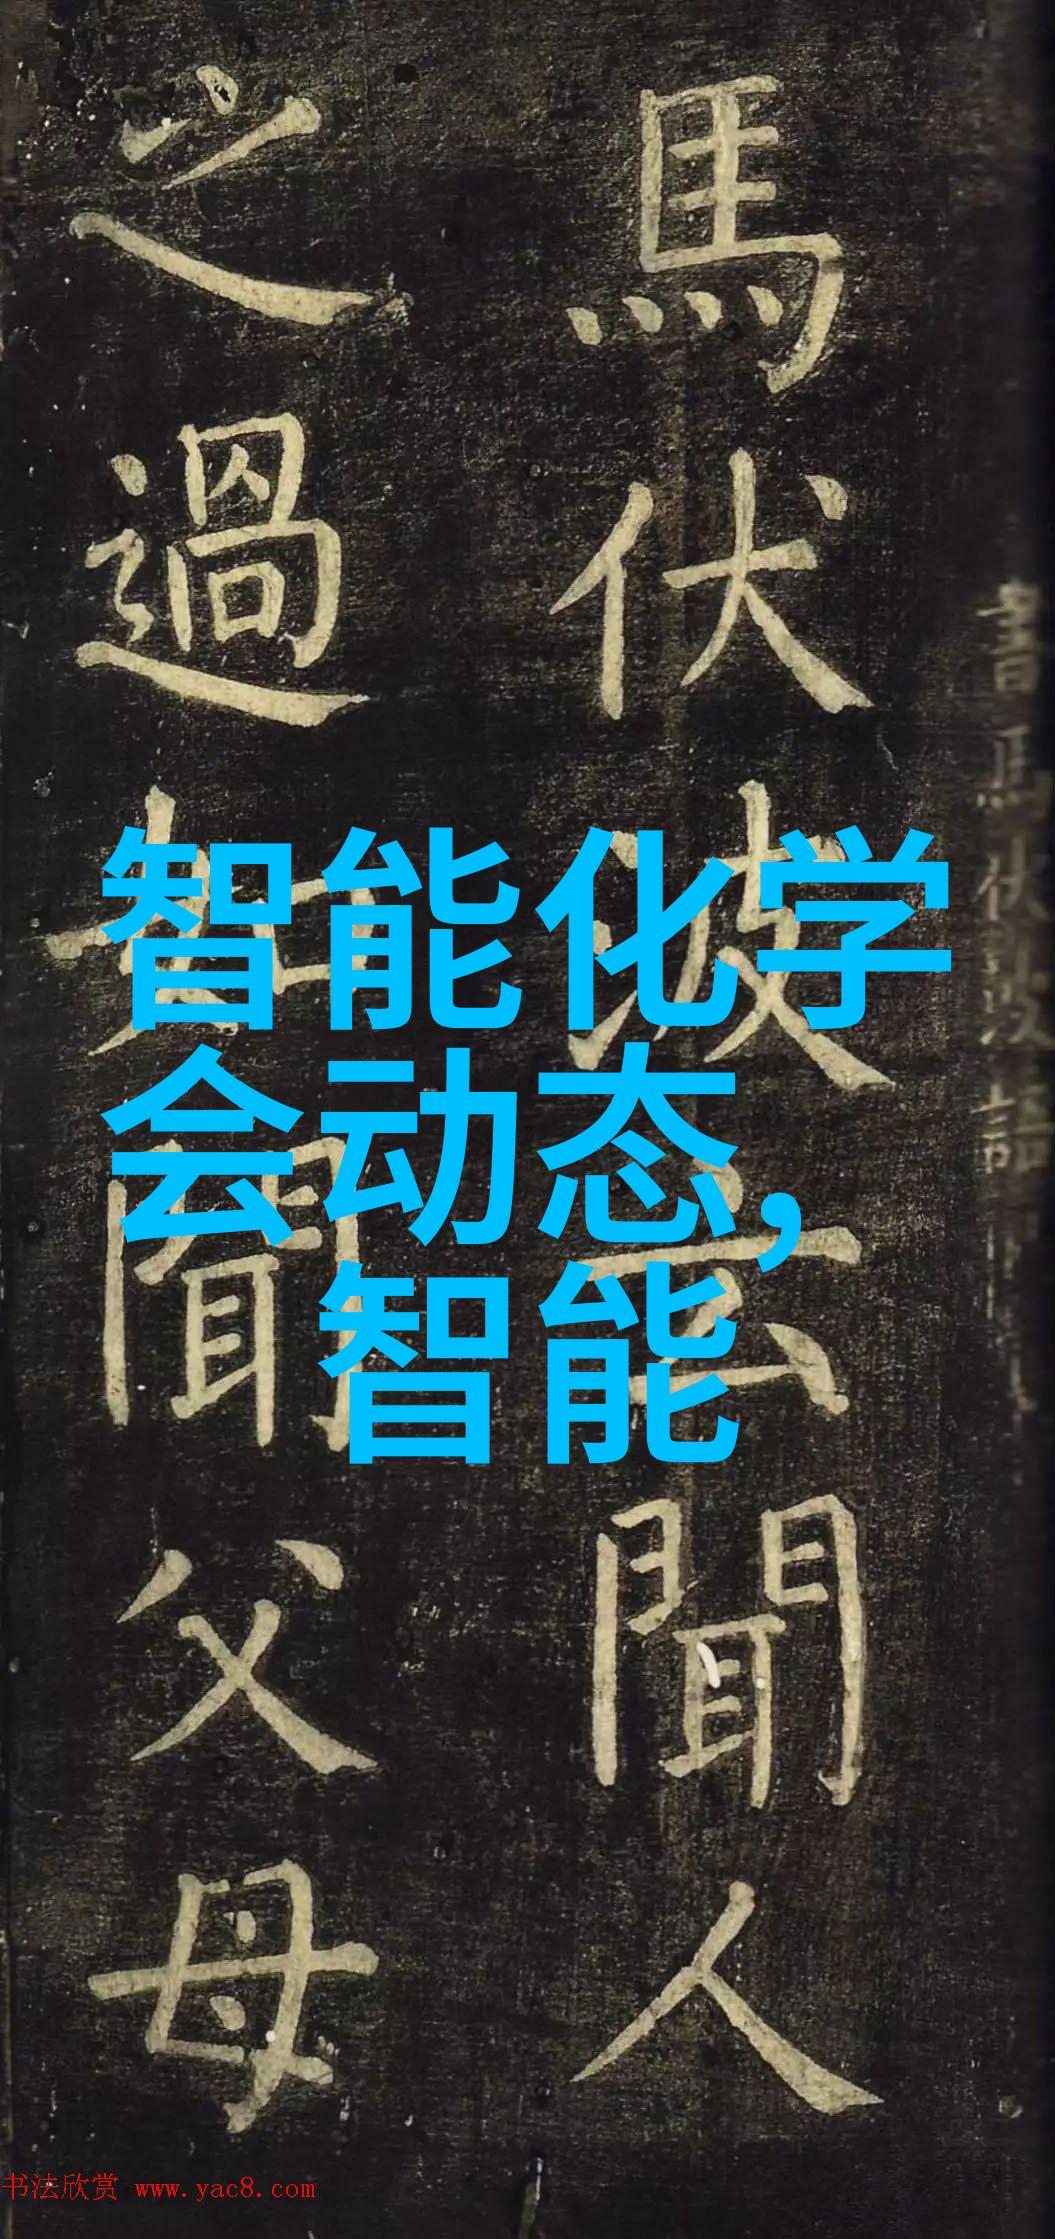 馬伏波云聞人
之過如聞父母
智能化学
会动态,
智能
书法欣赏 www.yac8.com